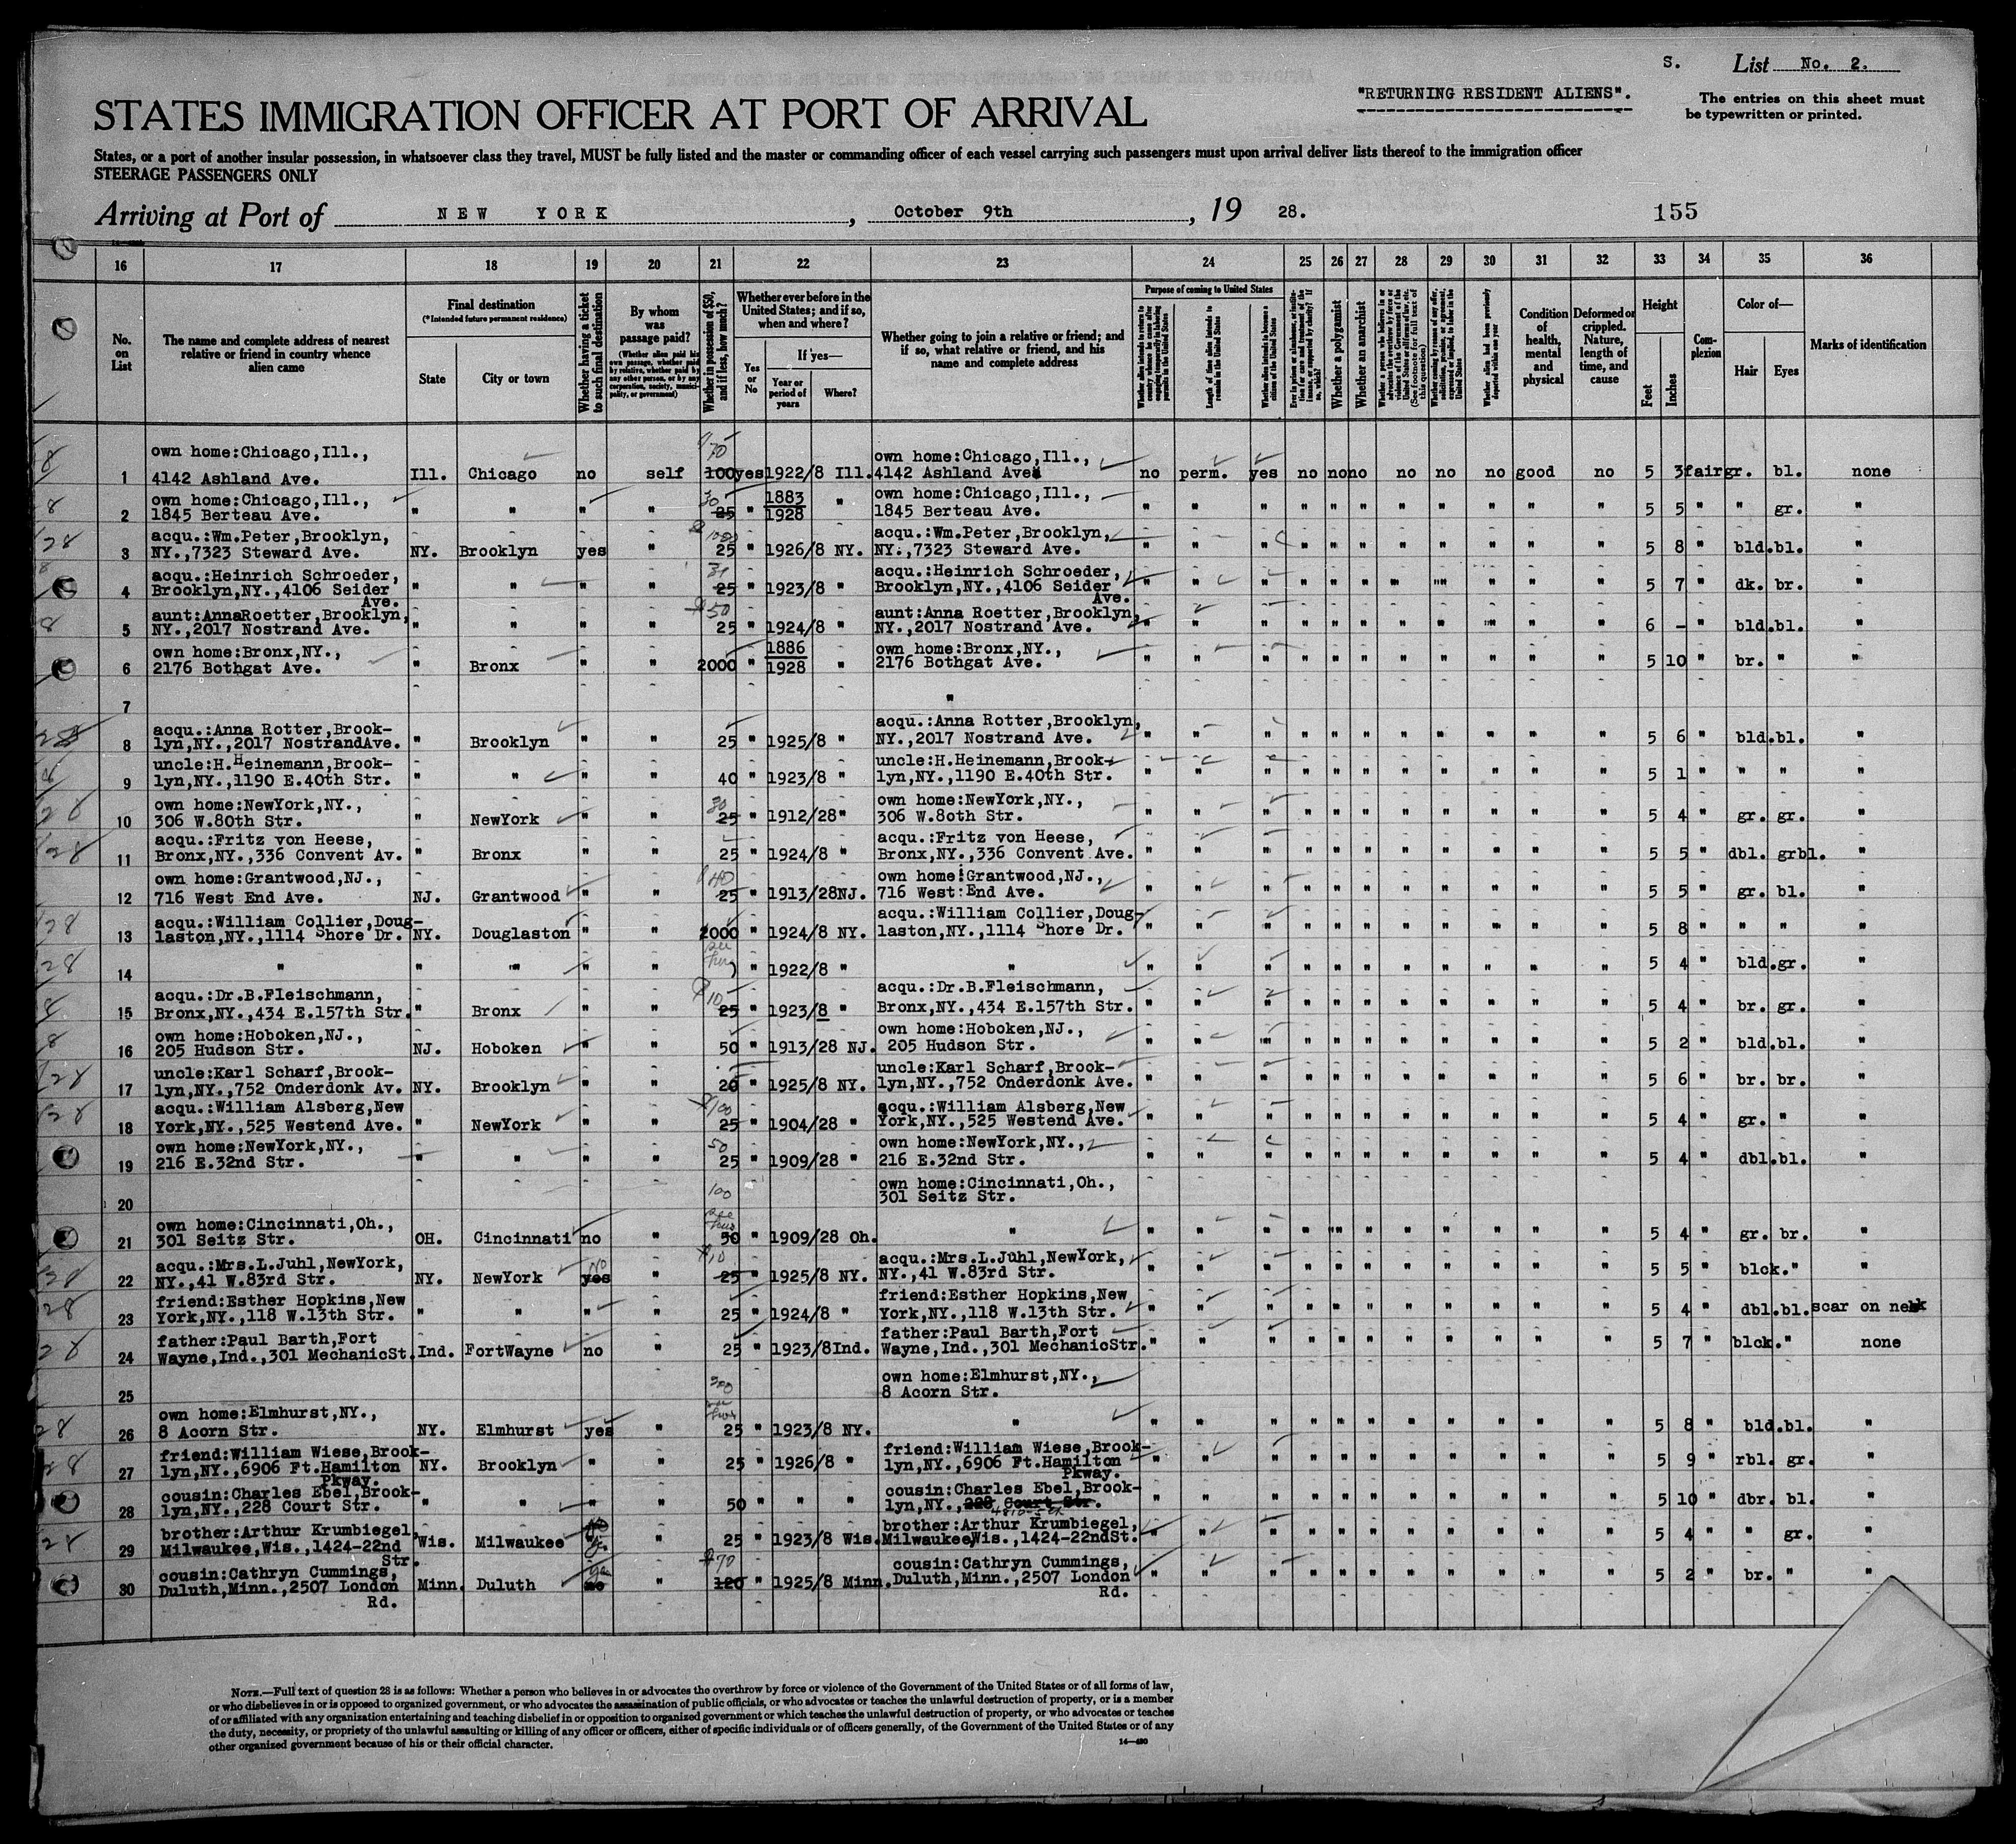 S. List No. 2.
"RETURNING RESIDENT ALIENS".
The entries on this sheet must
be typewritten or printed.
STATES IMMIGRATION OFFICER AT PORT OF ARRIVAL
States, or a port of another insular possession, in whatsoever class they travel, MUST be fully listed and the master or commanding officer of each vessel carrying such passengers must upon arrival deliver lists thereof to the immigration officer
STEERAGE PASSENGERS ONLY
Arriving at Port of NEW YORK, October 9th, 19 28. 155
16 17 18 19 20 21 22 23 24 25 26 27 28 29 30 31 32 33 34 35 36
No. on List
The name and complete address of nearest relative or friend in country whence alien came
Final destination
(*Intended future permanent residence)
State
City or town
Whether having a ticket to such final destination
By whom was passage paid?
(Whether alien paid his own passage, whether paid by relative, whether paid by any other person, or by any corporation, society, municipality, or government)
Whether in possession of $50, and if less, how much?
Whether ever before in the United States; and if so, when and where?
Yes or No
If yes—
Year or period of years
Where?
Whether going to join a relative or friend; and if so, what relative or friend, and his name and complete address
Purpose of coming to United States
Length of time alien intends to remain in the United States
Whether alien intends to become a citizen of the United States
Whether a polygamist
Whether an anarchist
Condition of health, mental and physical
Deformed or crippled. Nature, length of time, and cause
Height
Feet
Inches
Complexion
Color of—
Hair
Eyes
Marks of identification
1 own home:Chicago,Ill., 4142 Ashland Ave. Ill. Chicago no self 70 100 yes 1922/8 Ill. own home:Chicago,Ill., 4142 Ashland Ave. no perm. yes no no no no no no good no 5 3 fair gr. bl. none
2 own home:Chicago,Ill., 1845 Berteau Ave. " " " " 30 25 " 1883 1928 " own home:Chicago,Ill., 1845 Berteau Ave. " " " " " " " " " " " 5 5 " " gr. "
3 acqu.:Wm.Peter,Brooklyn, NY.,7323 Steward Ave. NY. Brooklyn yes " 25 " 1926/8 NY. acqu.:Wm.Peter,Brooklyn, NY.,7323 Steward Ave. " " " " " " " " " " " 5 8 " bld. bl. "
4 acqu.:Heinrich Schroeder, Brooklyn,NY.,4106 Seider Ave. " " " " 25 " 1923/8 " acqu.:Heinrich Schroeder, Brooklyn,NY.,4106 Seider Ave. " " " " " " " " " " " 5 7 " dk. br. "
5 aunt:AnnaRoetter,Brooklyn, NY.,2017 Nostrand Ave. " " " " 50 25 " 1924/8 " aunt:Anna Roetter,Brooklyn, NY.,2017 Nostrand Ave. " " " " " " " " " " " 6 - " bld. bl. "
6 own home:Bronx,NY., 2176 Bothgat Ave. " Bronx " " 2000 " 1886 1928 " own home:Bronx,NY., 2176 Bothgat Ave. " " " " " " " " " " " 5 10 " br. " "
7 "
8 acqu.:Anna Rotter,Brook- lyn,NY.,2017 NostrandAve. " Brooklyn " " 25 " 1925/8 " acqu.:Anna Rotter,Brooklyn, NY.,2017 Nostrand Ave. " " " " " " " " " " " 5 6 " bld. bl. "
9 uncle:H.Heinemann,Brook- lyn,NY.,1190 E.40th Str. " " " " 40 " 1923/8 " uncle:H.Heinemann,Brook- lyn,NY.,1190 E.40th Str. " " " " " " " " " " " 5 1 " " " "
10 own home:NewYork,NY., 306 W.80th Str. " NewYork " " 30 25 " 1912/28 " own home:NewYork,NY., 306 W.8oth Str. " " " " " " " " " " " 5 4 " gr. gr. "
11 acqu.:Fritz von Heese, Bronx,NY.,336 Convent Av. " Bronx " " 25 " 1924/8 " acqu.:Fritz von Heese, Bronx,NY.,336 Convent Ave. " " " " " " " " " " " 5 5 " dbl. grbl. "
12 own home:Grantwood,NJ., 716 West End Ave. NJ. Grantwood " " 40 25 " 1913/28 NJ. own home:Grantwood,NJ., 716 West End Ave. " " " " " " " " " " " 5 5 " gr. bl. "
13 acqu.:William Collier,Doug- laston,NY.,1114 Shore Dr. NY. Douglaston " " 2000 " 1924/8 NY. acqu.:William Collier,Doug- laston,NY.,1114 Shore Dr. " " " " " " " " " " " 5 8 " " " "
14 " " " " " " 1922/8 " " " " " " " " " " " " " 5 4 " bld. gr. "
15 acqu.:Dr.B.Fleischmann, Bronx,NY.,434 E.157th Str. " Bronx " " 10 25 " 1923/8 " acqu.:Dr.B.Fleischmann, Bronx,NY.,434 E.157th Str. " " " " " " " " " " " 5 4 " br. gr. "
16 own home:Hoboken,NJ., 205 Hudson Str. NJ. Hoboken " " 50 " 1913/28 NJ. own home:Hoboken,NJ., 205 Hudson Str. " " " " " " " " " " " 5 2 " bld. bl. "
17 uncle:Karl Scharf,Brook- lyn,NY.,752 Onderdonk Av. NY. Brooklyn " " 20 " 1925/8 NY. uncle:Karl Scharf,Brook- lyn,NY.,752 Onderdonk Ave. " " " " " " " " " " " 5 6 " br. br. "
18 acqu.:William Alsberg,New York,NY.,525 Westend Ave. " NewYork " " 100 25 " 1904/28 " acqu.:William Alsberg,New York,NY.,525 Westend Ave. " " " " " " " " " " " 5 4 " gr. " "
19 own home:NewYork,NY., 216 E.32nd Str. " " " " 50 25 " 1909/28 " own home:NewYork,NY., 216 E.32nd Str. " " " " " " " " " " " 5 4 " dbl. bl. "
20 100 own home:Cincinnati,Oh., 301 Seitz Str.
21 own home:Cincinnati,Oh., 301 Seitz Str. OH. Cincinnati no " 50 " 1909/28 Oh. " " " " " " " " " " " " 5 4 " gr. br. "
22 acqu.:Mrs.L.Juhl,NewYork, NY.,41 W.83rd Str. NY. NewYork no yes " 10 25 " 1925/8 NY. acqu.:Mrs.L.Juhl,NewYork, NY.,41 W.83rd Str. " " " " " " " " " " " 5 5 " blck. " "
23 friend:Esther Hopkins,New York,NY.,118 W.13th Str. " " " " 25 " 1924/8 " friend:Esther Hopkins,New York,NY.,118 W.13th Str. " " " " " " " " " " " 5 4 " dbl. bl. scar on neck
24 father:Paul Barth,Fort Wayne,Ind.,301 MechanicSt. Ind. FortWayne no " 25 " 1923/8 Ind. father:Paul Barth,Fort Wayne,Ind.,301 MechanicStr. " " " " " " " " " " " 5 7 " blck. " none
25 own home:Elmhurst,NY., 8 Acorn Str.
26 own home:Elmhurst,NY., 8 Acorn Str. NY. Elmhurst yes " 25 " 1923/8 NY. " " " " " " " " " " " " 5 8 " bld. bl. "
27 friend:William Wiese,Brook- lyn,NY.,6906 Ft.Hamilton Pkway. NY. Brooklyn " " 25 " 1926/8 " friend:William Wiese,Brook- lyn,NY.,6906 Ft.Hamilton Pkway. " " " " " " " " " " " 5 9 " rbl. gr. "
28 cousin:Charles Ebel,Brook- lyn,NY.,228 Court Str. " " " " 50 " " " cousin:Charles Ebel,Brook- lyn,NY.,228 Court Str. " " " " " " " " " " " 5 10 " dbr. bl. "
29 brother:Arthur Krumbiegel, Milwaukee,Wis.,1424-22nd Str. Wis. Milwaukee " 25 " 1923/8 Wis. brother:Arthur Krumbiegel, Milwaukee,Wis.,1424-22ndSt. " " " " " " " " " " " 5 4 " " gr. "
30 cousin:Cathryn Cummings, Duluth,Minn.,2507 London Rd. Minn. Duluth no " 70 120 " 1925/8 Minn. cousin:Cathryn Cummings, Duluth,Minn.,2507 London Rd. " " " " " " " " " " " 5 2 " br. " "
NOTE.—Full text of question 28 is as follows: Whether a person who believes in or advocates the overthrow by force or violence of the Government of the United States or of all forms of law,
or who disbelieves in or is opposed to organized government, or who advocates the assassination of public officials, or who advocates or teaches the unlawful destruction of property, or is a member
of or affiliated with any organization entertaining and teaching disbelief in or opposition to organized government or which teaches the unlawful destruction of property, or who advocates or teaches
the duty, necessity, or propriety of the unlawful assaulting or killing of any officer or officers, either of specific individuals or of officers generally, of the Government of the United States or of any
other organized government because of his or their official character.
14—480